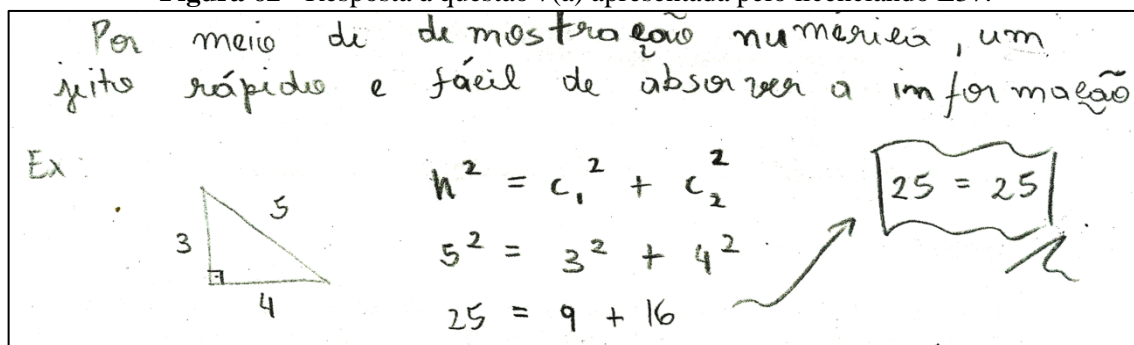 Por meio de demostração numerica, um
jeito rápido e fácil de absorver a informação
Ex:
3
5
4
h² = c₁² + c₂²
5² = 3² + 4²
25 = 9 + 16
25 = 25